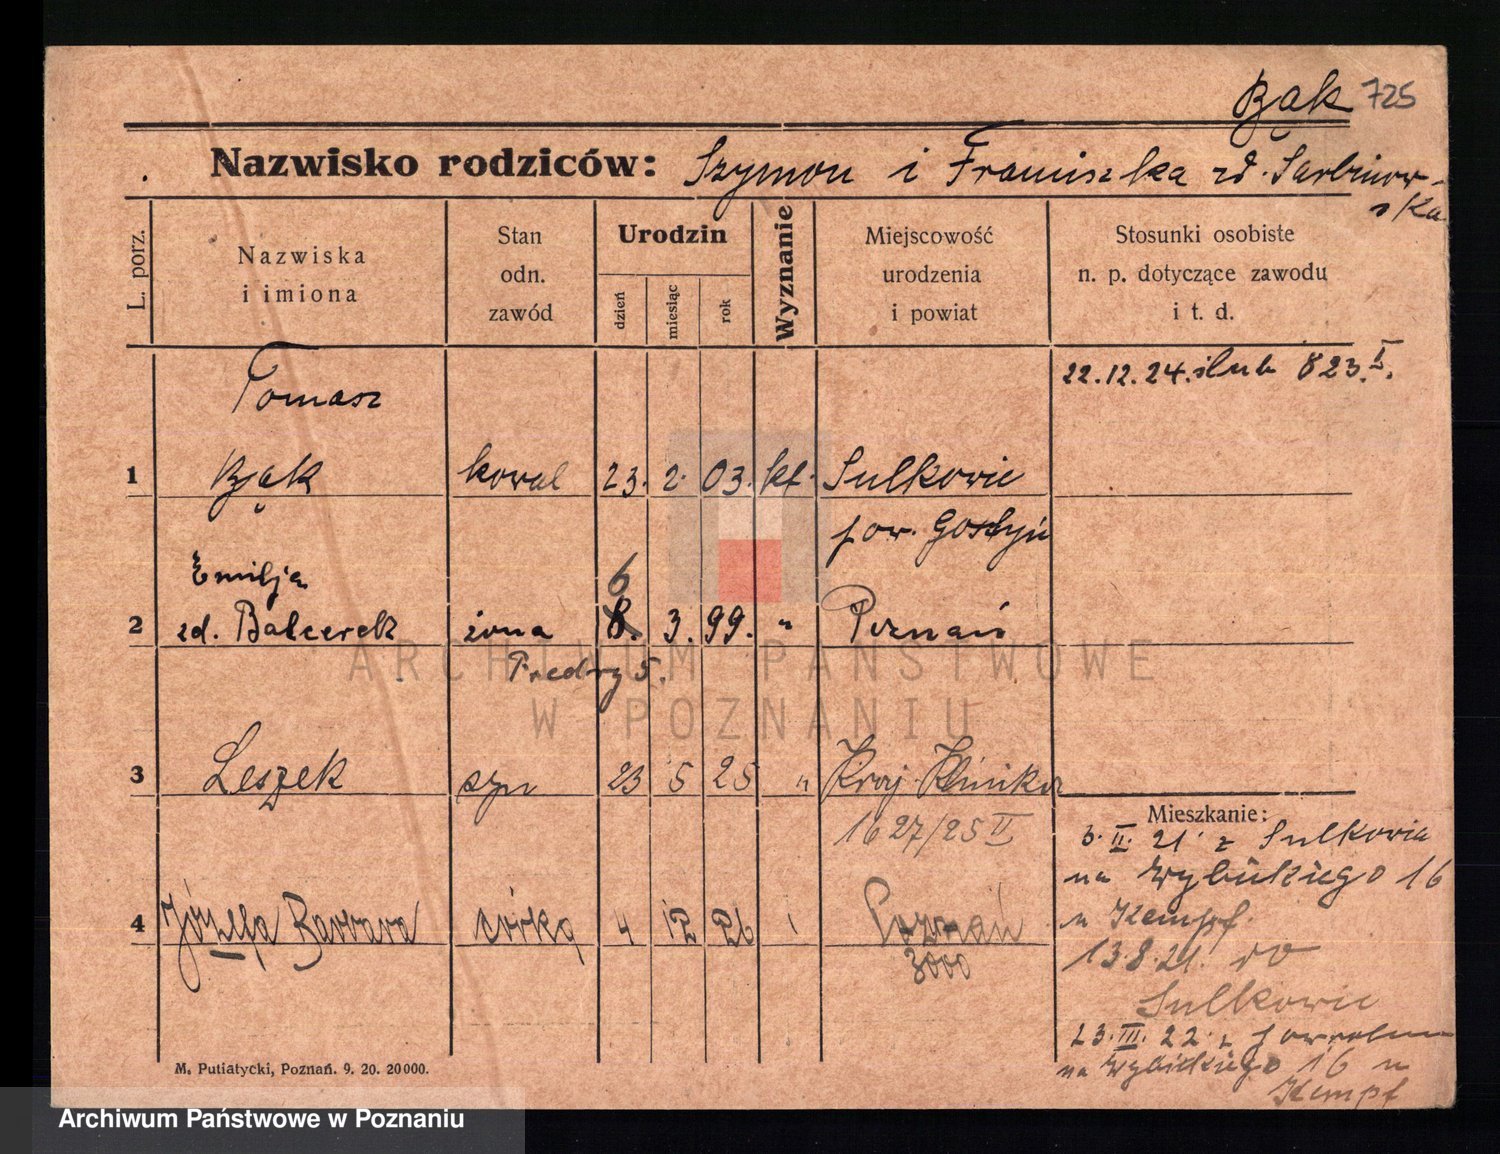 Bąk 725
Nazwisko rodziców: Szymon i Franciszka zd. Sarbinow-
ska
L. porz.
Nazwiska
i imiona
Stan
odn.
zawód
Urodzin
dzień
miesiąc
rok
Wyznanie
Miejscowość
urodzenia
i powiat
Stosunki osobiste
n. p. dotyczące zawodu
i t. d.
Tomasz
22.12.24. ślub 823.I.
1 Bąk kowal 23. 2. 03. kt. Sulkowic
pow. Gostyń
Emilja
6
2 zd. Balcerek żona 8. 3. 99. " Poznań
Fredry 5.
3 Leszek syn 23 5 25 " Kraj. Klinika
1627/25 II
4 Józefa Barbara córka 4 12 26 Poznań
3000
Mieszkanie:
3. II. 21 z Sulkowia
na Wybickiego 16
u Kempf.
13.8.21. do
Sulkowic
23. III. 22 z powrotem
na Wybickiego 16 u
Kempf
M. Putiatycki, Poznań. 9. 20. 20000.
ARCHIWUM PAŃSTWOWE
W POZNANIU
Archiwum Państwowe w Poznaniu